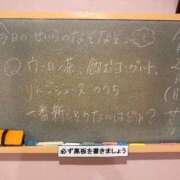 今日のせいらのなぞなぞ
ウーロン茶、飲むヨーグルト、
りんごジュースのうち
一番新しそうなのはどれ?
必ず黒板を書きましょう